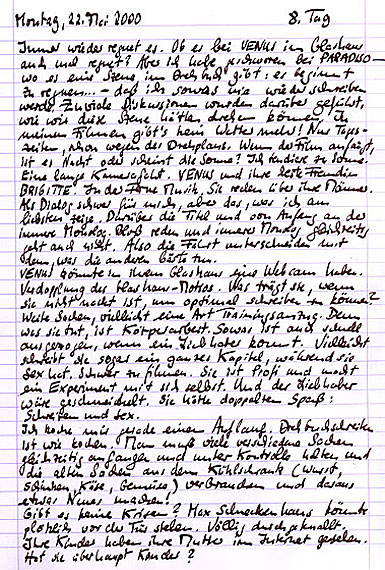 Montag, 22. Mai 2000 8. Tag
Immer wieder regnet es. Ob es bei VENUS im Glashaus
auch mal regnet? Aber ich habe geschworen bei PARADISO –
wo es eine Szene im Drehbuch gibt: es beginnt
zu regnen... – daß ich sowas nie wieder schreiben
werde. Zuviele Diskussionen wurden darüber geführt,
wie wir diese Szene hätten drehen können. In
meinen Filmen gibt's kein Wetter mehr! Nur Tages-
zeiten, schon wegen des Drehplans. Wenn der Film anfängt,
ist es Nacht oder scheint die Sonne? Ich tendiere zu Sonne.
Eine lange Kamerafahrt. VENUS und ihre beste Freundin
BRIGITTE. In der Ferne Musik. Sie reden über ihre Männer.
Als Dialog schwer für mich, aber das, was ich am
liebsten zeige. Darüber die Titel und von Anfang an der
innere Monolog. Bloß reden und innerer Monolog gleichzeitig
geht auch nicht. Also die Fahrt unterschneiden mit
dem, was die anderen tun.
VENUS könnte in ihrem Glashaus eine Webcam haben.
Verdopplung des Glashaus-Motivs. Was trägt sie, wenn
sie nicht nackt ist, um optimal schreiben zu können?
Weite Sachen, vielleicht eine Art Trainingsanzug. Denn
was sie tut, ist Körperarbeit. Sowas ist auch schnell
ausgezogen, wenn ein Liebhaber kommt. Vielleicht
schreibt sie sogar ein ganzes Kapitel, während sie
Sex hat. Schwer zu filmen. Sie ist Profi und macht
ein Experiment mit sich selbst. Und der Liebhaber
wäre geschmeichelt. Sie hätte doppelten Spaß:
Schreiben und Sex.
Ich koche mir gerade einen Auflauf. Drehbuchschreiben
ist wie kochen. Man muß viele verschiedene Sachen
gleichzeitig anfangen und unter Kontrolle halten und
die alten Sachen aus dem Kühlschrank (Wurst,
Schinken, Käse, Gemüse) verbrauchen und daraus
etwas Neues machen!
Gibt es keine Krisen? Max Schneckenhaus könnte
plötzlich vor der Tür stehen. Völlig durchgeknallt.
Ihre Kinder haben ihre Mutter im Internet gesehen.
Hat sie überhaupt Kinder?